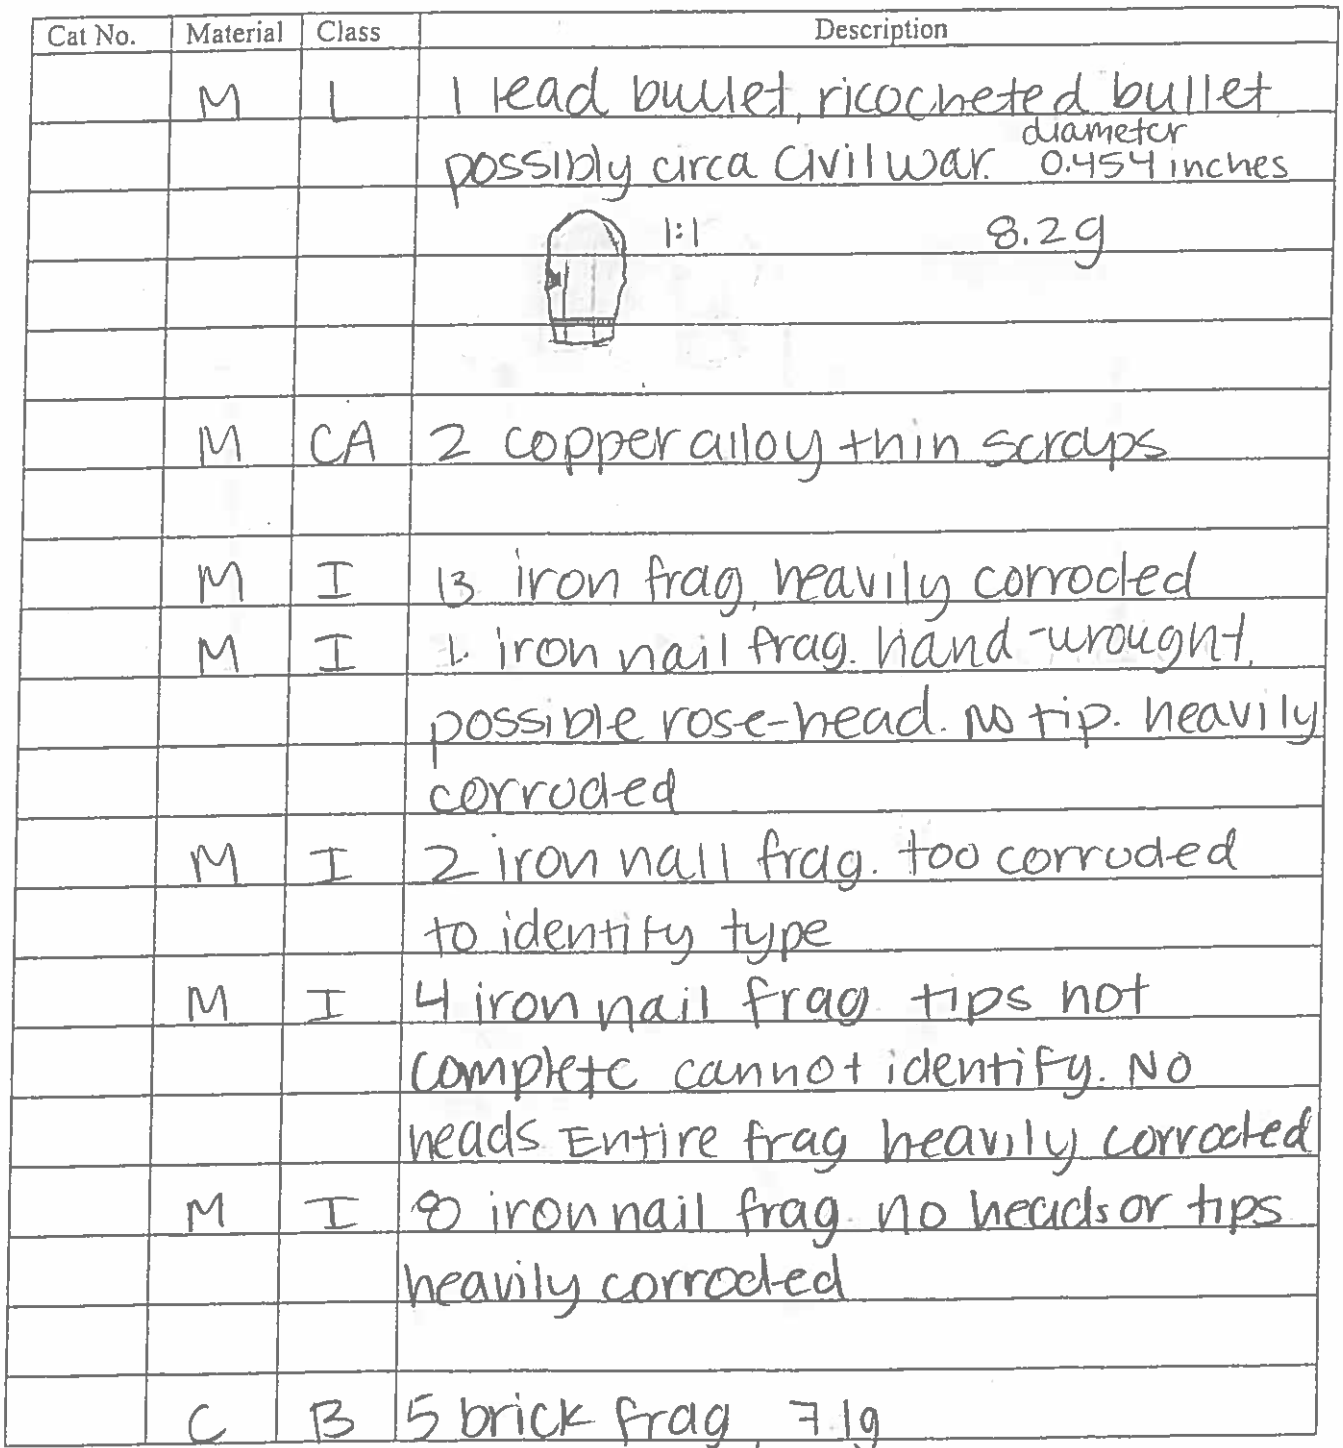 Cat No. Material Class Description
M L 1 lead bullet, ricocheted bullet
possibly circa Civil war. diameter 0.454 inches
1:1 8.2g
M CA 2 copper alloy thin scraps
M I 13 iron frag, heavily corroded
M I 1. iron nail frag. hand-wrought,
possible rose-head. No tip. heavily
corroded
M I 2 iron nail frag. too corroded
to identify type
M I 4 iron nail frag tips not
complete cannot identify. No
heads. Entire frag heavily corroded
M I 8 iron nail frag. no heads or tips
heavily corroded
C B 5 brick frag,